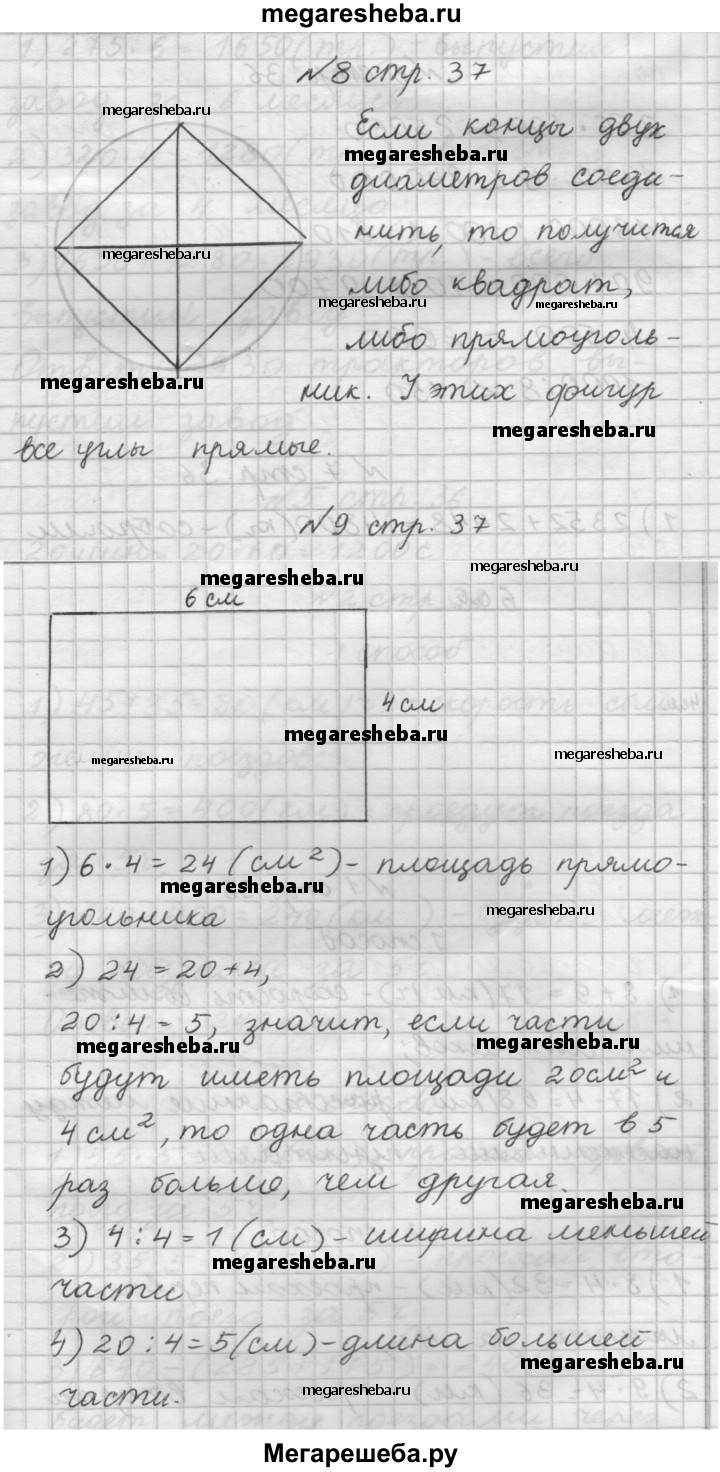 megaresheba.ru
№8 стр. 37
Если концы двух
megaresheba.ru
megaresheba.ru
диаметров соеди-
нить, то получится
megaresheba.ru
либо квадрат,
megaresheba.ru
megaresheba.ru
либо прямоуголь-
megaresheba.ru
ник. У этих фигур
megaresheba.ru
все углы прямые.
№9 стр. 37
megaresheba.ru
megaresheba.ru
6 см
4 см
megaresheba.ru
megaresheba.ru
megaresheba.ru
1) 6 · 4 = 24 (см²) - площадь прямо-
megaresheba.ru
угольника
megaresheba.ru
2) 24 = 20 + 4,
20 : 4 = 5, значит, если части
megaresheba.ru
megaresheba.ru
будут иметь площади 20 см² и
4 см², то одна часть будет в 5
раз больше, чем другая.
megaresheba.ru
3) 4 : 4 = 1 (см) - ширина меньшей
megaresheba.ru
части
4) 20 : 4 = 5 (см) - длина большей
megaresheba.ru
части.
megaresheba.ru
Мегарешеба.ру